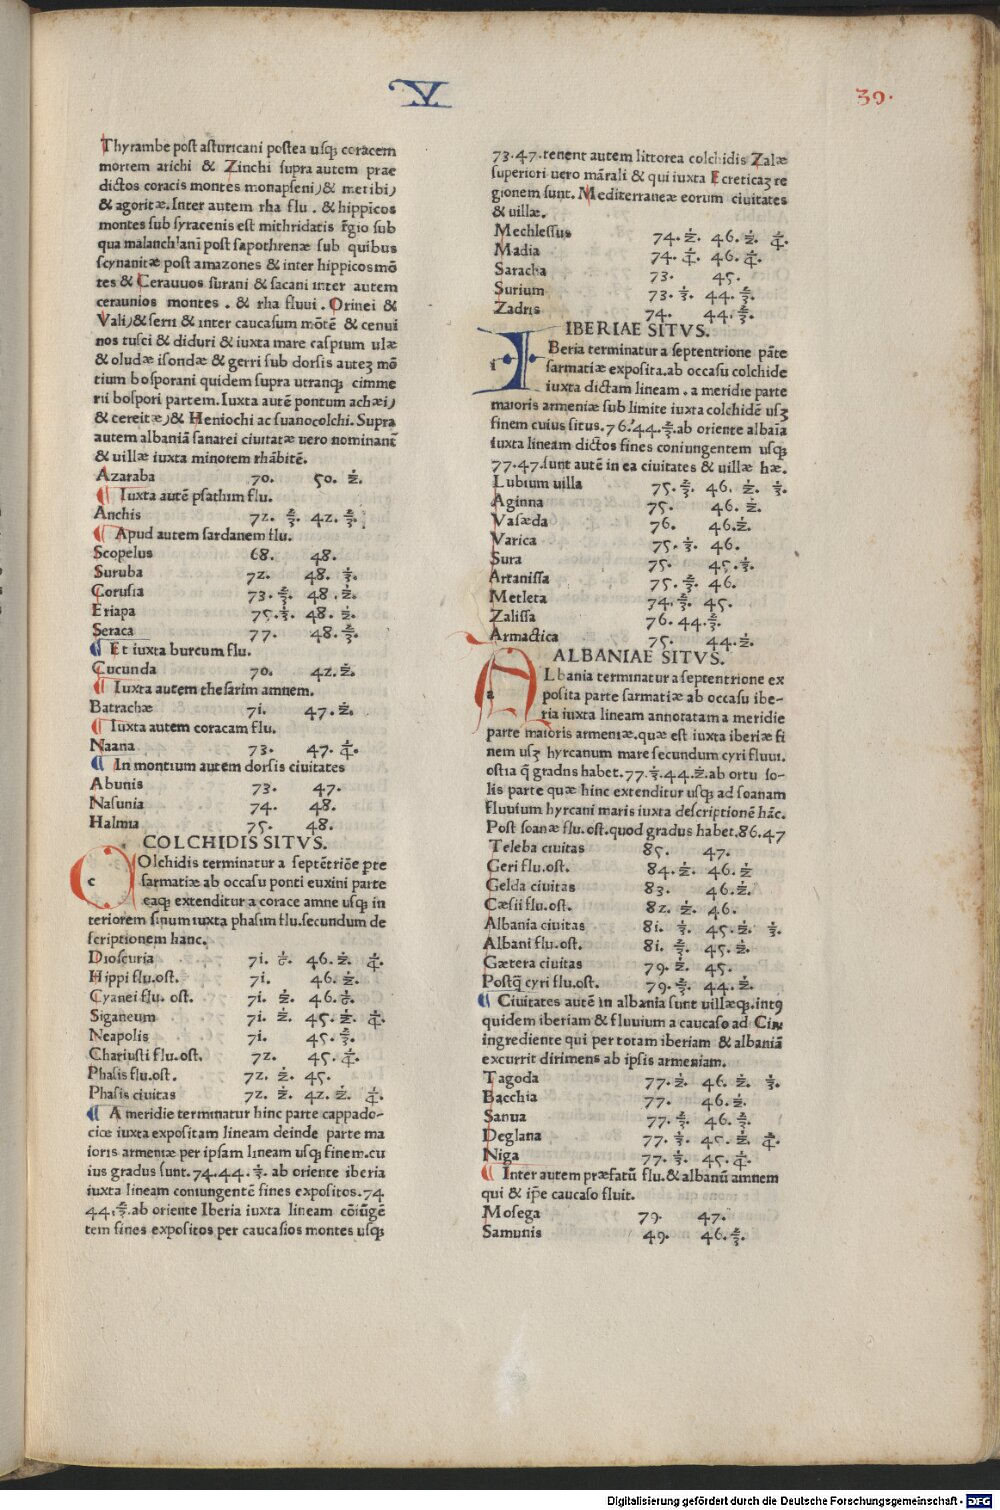 V
39.
Thyrambe post asturicani postea usqꝫ coracem
mortem arichi & Zinchi supra autem prae
dictos coracis montes monapseni,& metibi,
& agoritæ. Inter autem rha flu . & hippicos
montes sub syracenis est mithridatis r̃gio sub
qua malanchlani post sapothrenæ sub quibus
scynanitæ post amazones & inter hippicos mõ
tes & Cerauuos surani & sacani inter autem
ceraunios montes . & rha fluui . Orinei &
Vali,& serri & inter caucasum mõtẽ & cenui
nos tusci & diduri & iuxta mare caspium ulæ
& oludæ isondæ & gerri sub dorsis auteꝫ mõ
tium bosporani quidem supra utranqꝫ cimme
rii bospori partem. Iuxta autẽ pontum achæi,
& cereitæ,& Heniochi ac suanocolchi. Supra
autem albaniã sanarei ciuitatæ uero nominant̃
& uillæ iuxta minorem rhã hitẽ.
Azaraba 70. 50. ½.
Iuxta autẽ psathim flu.
Anchis 72. ⅔ 42. ⅔.
Apud autem sardanem flu.
Scopelus 68. 48.
Suruba 72. 48. ⅓.
Corusia 73. ⅔. 48. ½.
Eriapa 75. ⅓. 48. ½.
Seraca 77. 48. ⅔.
Et iuxta burcum flu.
Cucunda 70. 42. ½.
Iuxta autem thesarim amnem.
Batrachæ 71. 47. ½.
Iuxta autem coracam flu.
Naana 73. 47. ¼.
In montium autem dorsis ciuitates
Abunis 73. 47.
Nasunia 74. 48.
Halmia 75. 48.
COLCHIDIS SITVS.
c Olchidis terminatur a septẽtriõe pte
sarmatiæ ab occasu ponti euxini parte
eaqꝫ extenditur a corace amne usqꝫ in
teriorem sinum iuxta phasim flu. secundum de
scriptionem hanc.
Dioscuria 71. ⅙. 46. ½. ¼.
Hippi flu. ost. 71. 46. ½.
Cyanei flu. ost. 71. ½. 46. ⅙.
Siganeum 71. ½. 45. ½. ¼.
Neapolis 71. 45. ⅔.
Chariusti flu. ost. 72. 45. ¼.
Phasis flu. ost. 72. ½. 45.
Phasis ciuitas 72. ½. 42. ½. ¼.
A meridie terminatur hinc parte cappado-
ciæ iuxta expositam lineam deinde parte ma
ioris armeniæ per ipsam lineam usqꝫ finem. cu
ius gradus sunt. 74. 44. ⅓. ab oriente iberia
iuxta lineam coniungentẽ fines expositos. 74
44. ⅔. ab oriente Iberia iuxta lineam cõiũgẽ
tem fines expositos per caucasios montes usqꝫ
73. 47. tenent autem littorea colchidis Zalæ
superiori uero mãrali & qui iuxta Ecreticaꝫ re
gionem sunt. Mediterraneæ eorum ciuitates
& uillæ.
Mechlessus 74. ½. 46. ½. ¼.
Madia 74. ¼. 46. ¼.
Saracha 73. 45.
Surium 73. ⅓. 44. ⅔.
Zadris 74. 44. ⅔.
IBERIAE SITVS.
i Beria terminatur a septentrione pãte
sarmatiæ exposita. ab occasu colchide
iuxta dictam lineam . a meridie parte
maioris armeniæ sub limite iuxta colchidẽ usꝫ
finem cuius situs. 76. 44. ⅔. ab oriente albaĩa
iuxta lineam dictos fines coniungentem usqꝫ
77. 47. sunt autẽ in ea ciuitates & uillæ hæ.
Lubium uilla 75. ⅔. 46. ½. ⅓.
Aginna 75. 46. ½.
Vasæda 76. 46. ½.
Varica 75. ⅓. 46.
Sura 75. 45. ⅓.
Artanissa 75. ⅔. 46.
Metleta 74. ⅔. 45.
Zalissa 76. 44. ⅔.
Armactica 75. 44. ½.
ALBANIAE SITVS.
a Lbania terminatur a septentrione ex
posita parte sarmatiæ ab occasu ibe-
ria iuxta lineam annotatam a meridie
parte maioris armeniæ. quæ est iuxta iberiæ fi
nem usꝫ hyrcanum mare secundum cyri fluui.
ostia q̃ gradus habet. 77. ⅓. 44. ½. ab ortu so-
lis parte quæ hinc extenditur usqꝫ ad soanam
fluuium hyrcani maris iuxta descriptionẽ hãc.
Post soanæ flu. ost. quod gradus habet. 86. 47
Teleba ciuitas 85. 47.
Geri flu. ost. 84. ½. 46. ½
Gelda ciuitas 83. 46. ½.
Cæsii flu. ost. 82. ½. 46.
Albania ciuitas 81. ⅓. 45. ½. ⅓.
Albani flu. ost. 81. ⅔. 45. ½.
Gætera ciuitas 79. ½. 45.
Postq̃ cyri flu. ost. 79. ⅔. 44. ½.
Ciuitates autẽ in albania sunt uillæqꝫ. intꝯ
quidem iberiam & fluuium a caucaso ad Cirũ
ingrediente qui per totam iberiam & albaniã
excurrit dirimens ab ipsis armeniam.
Tagoda 77. ½. 46. ½. ⅓.
Bacchia 77. 46. ½.
Sanua 77. ⅔. 46. ⅔.
Deglana 77. ⅓. 45. ½. ¼.
Niga 77. ⅓. 45. ¼.
Inter autem præfatũ flu. & albanũ amnem
qui & ip̃e caucaso fluit.
Mosega 79. 47.
Samunis 49. 46. ⅔.
Digitalisierung gefördert durch die Deutsche Forschungsgemeinschaft - DFG